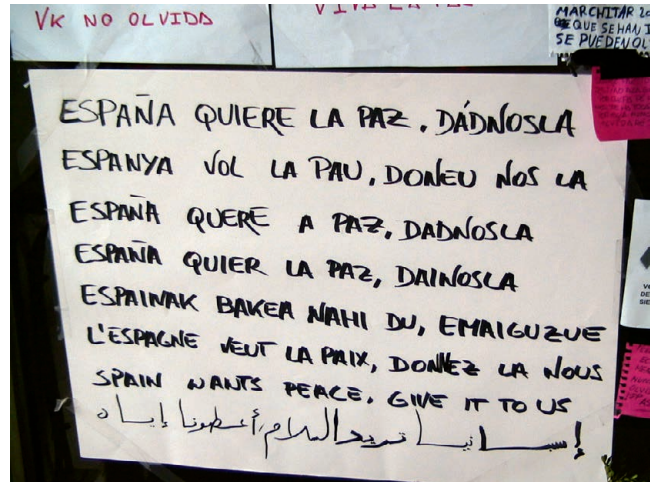 VK NO OLVIDA
MARCHITAR
QUE SE HAN
SE PUEDEN
ESPAÑA QUIERE LA PAZ, DÁDNOSLA
ESPANYA VOL LA PAU, DONEU NOS LA
ESPAÑA QUERE A PAZ, DADNOSLA
ESPAÑA QUIER LA PAZ, DAINOSLA
ESPAINAK BAKEA NAHI DU, EMAIGUZUE
L'ESPAGNE VEUT LA PAIX, DONNEZ LA NOUS
SPAIN WANTS PEACE, GIVE IT TO US
إسبانيا تريد السلام، أعطونا إياه